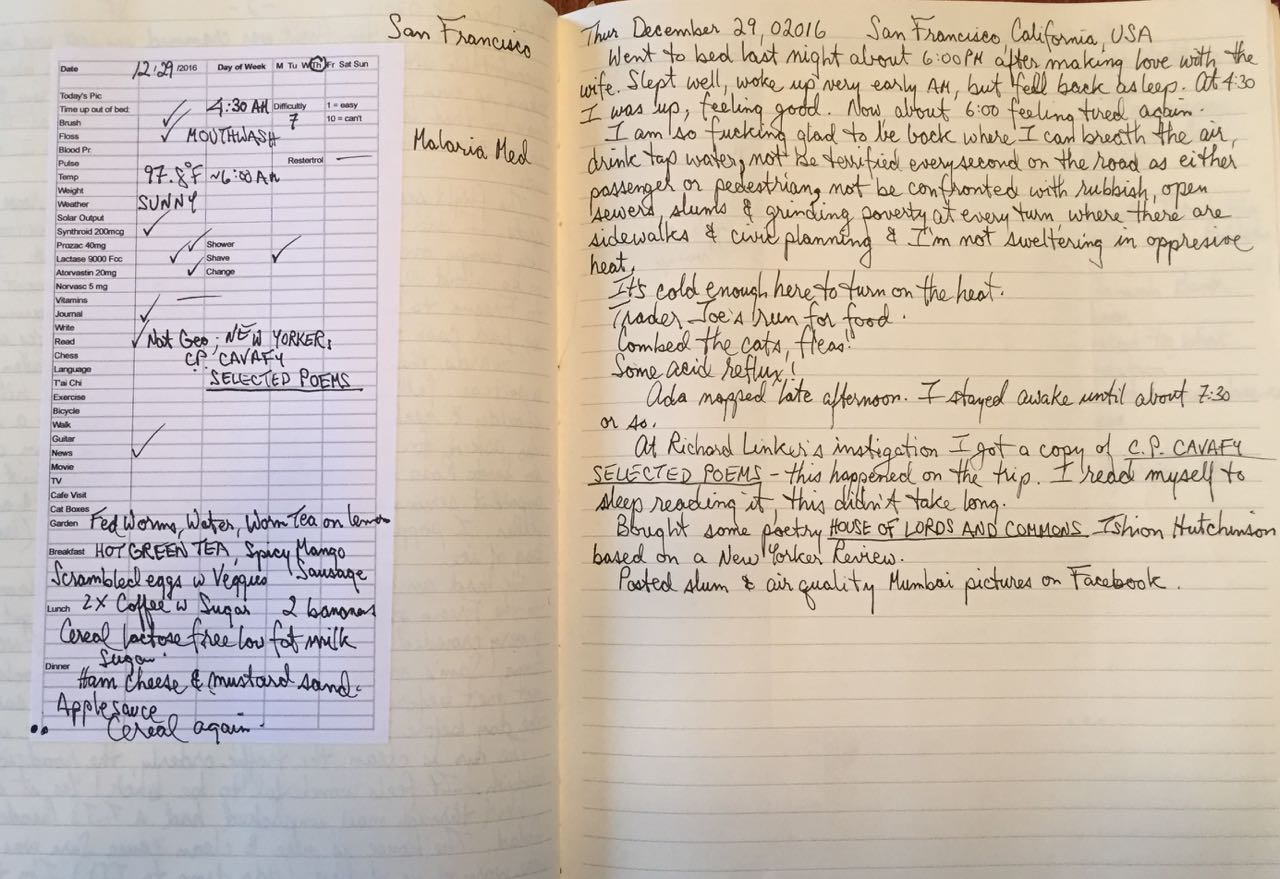 San Francisco
Date 12:29/2016 Day of Week M Tu W Th Fr Sat Sun
Today's Pic
Time up out of bed: 4:30 AM Difficultly 1 = easy
Brush 7 10 = can't
Floss MOUTHWASH
Blood Pr.
Pulse Restertrol —
Temp 97.8°F ~6:00 AM
Weight
Weather SUNNY
Solar Output
Synthroid 200mcg
Prozac 40mg Shower
Lactase 9000 Fcc Shave
Atorvastin 20mg Change
Norvasc 5 mg
Vitamins —
Journal
Write
Read Nat Geo; NEW YORKER;
Chess C.P. CAVAFY
Language SELECTED POEMS
T'ai Chi
Exercise
Bicycle
Walk
Guitar
News
Movie
TV
Cafe Visit
Cat Boxes
Garden Fed Worms, Water, Worm Tea on lemon
Breakfast HOT GREEN TEA, Spicy Mango
Scrambled eggs w Veggies Sausage
Lunch 2X Coffee w Sugar 2 bananas
Cereal lactose free low fat milk
Sugar.
Dinner
Ham Cheese & mustard sand.
Applesauce
Cereal again.
Malaria Med
Thur December 29, 02016 San Francisco, California, USA
Went to bed last night about 6:00 PM after making love with the
wife. Slept well, woke up very early AM, but fell back asleep. At 4:30
I was up, feeling good. Now about 6:00 feeling tired again.
I am so fucking glad to be back where I can breath the air,
drink tap water, not be terrified every second on the road as either
passenger or pedestriang, not be confronted with rubbish, open
sewers, slums & grinding poverty at every turn, where there are
sidewalks & civic planning & I'm not sweltering in oppresive
heat.
It's cold enough here to turn on the heat.
Trader Joe's run for food.
Combed the cats, fleas!
Some acid reflux!
Ada napped late afternoon. I stayed awake until about 7:30
or so.
At Richard Linker's instigation I got a copy of C.P. CAVAFY
SELECTED POEMS – this happened on the trip. I read myself to
sleep reading it, this didn't take long.
Bought some poetry HOUSE OF LORDS AND COMMONS Ishion Hutchinson
based on a New Yorker Review.
Posted slum & air quality Mumbai pictures on Facebook.